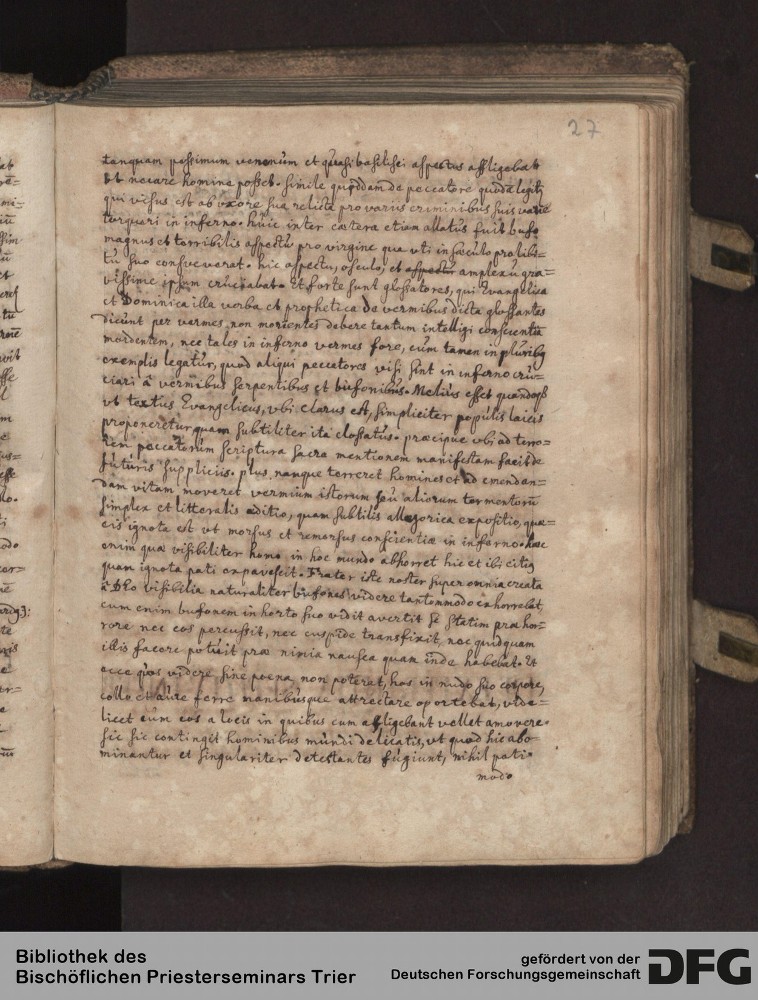 27
tanquam pessimum venenum et quasi basilisci aspectus affligebat
ut necare homine posset. Simile quoddam de peccatore quodã legitᷣ
qui visus est ab vxore sua relicta pro variis criminibus suis varie
torqueri in inferno. huic inter cætera etiam allatus fuit bufo
magnus et terribilis aspectu pro virgine qua vti in sæculo pro libi=
tu suo consueverat. hic aspectu, osculo, et aspectu amplexu gra=
vissime ipsum cruciabat. Et forte sunt glossatores, qui Evangelica
et Dominica illa verba et prophetica de vermibus dicta glossantes
dicunt per vermes, non morientes debere tantum intelligi conscientiã
mordentem, nec tales in inferno vermes fore, cum tamen in pluribꝫ
exemplis legatur, quod aliqui peccatores visi sint in inferno cru=
ciari â vermibus serpentibus et bufonibus. Melius esset quandoqꝫ
vt textus Evangelicus, vbi clarus est, simpliciter populis laicis
proponeretur quam subtiliter ita clossatus. præcipue vbi ad terro=
rem peccatorum scriptura sacra mentionem manifestam facit de
futuris suppliciis. plus nanque terreret homines et ad emendan=
dam vitam moveret vermium istorum seu aliorum tormentorũ
simplex et litteralis editio, quam subtilis allegorica expositio, quæ=
eis ignota est vt morsus et remorsus conscientiæ in inferno. hæc
enim quæ visibiliter homo in hoc mundo abhorret hic et ibi citiꝰ
quam ignota pati expavescit. Frater iste noster super omnia creata
â DEo visibilia naturaliter bufones videre tantommodo exhorrebat,
cum enim bufonem in horto suo vidit avertit se statim præ hor=
rore nec eos percussit, nec cuspide transfixit, nec quidquam
illis facere potuit præ nimia nausea quam inde habebat. Et
ecce quos videre sine poena non poterat, hos in nudo suo corpore,
collo et aure ferre manibusque attrectare oportebat, vide=
licet cum eos a locis in quibus eum affligebant vellet amovere.
sic sic contingit hominibus mundi delicatis, vt quod hic abo
minantur et singulariter detestantes fugiunt, nihil pati
modo
Bibliothek des
Bischöflichen Priesterseminars Trier
gefördert von der
Deutschen Forschungsgemeinschaft
DFG